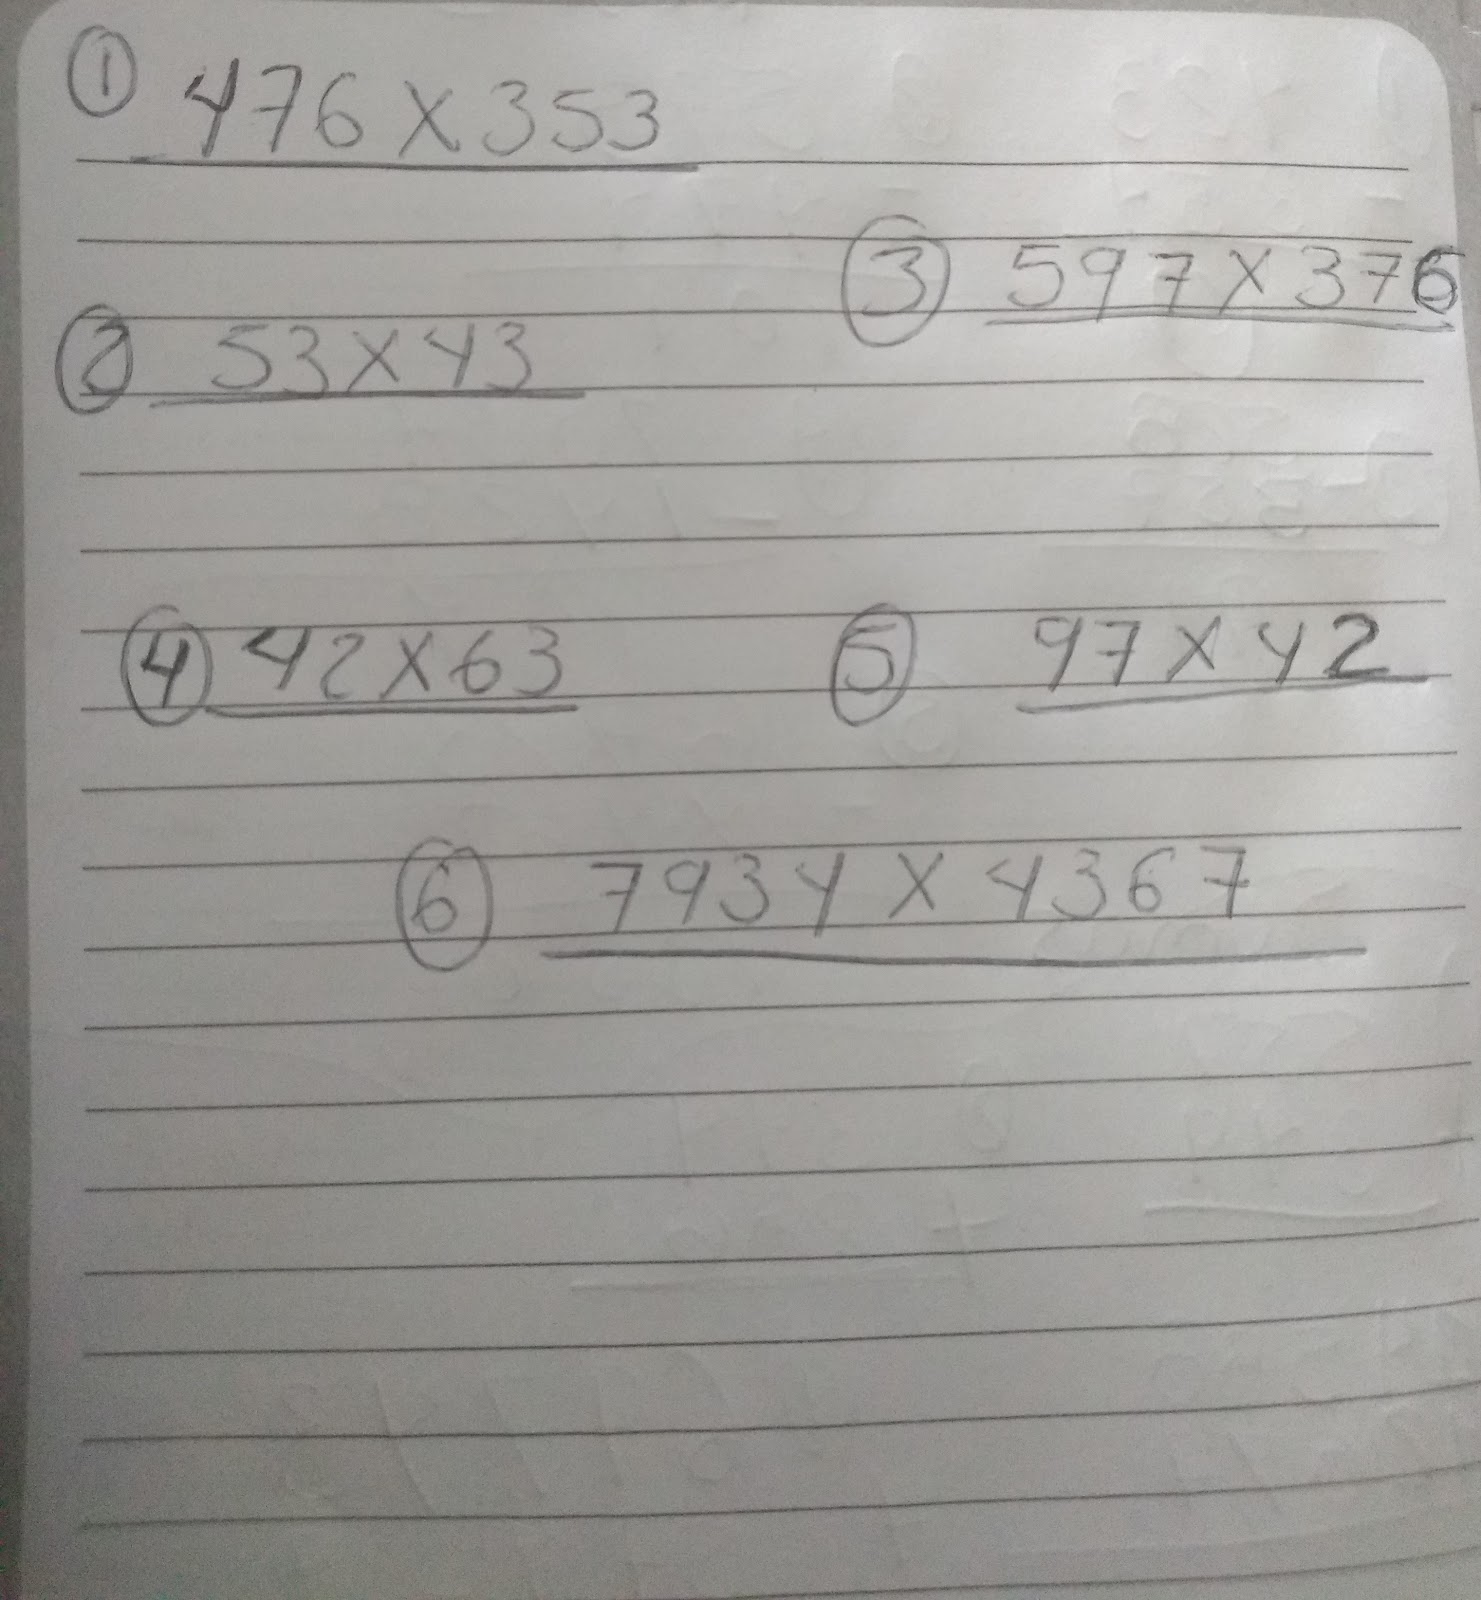 ① 476 X 353
③ 597 X 376
② 53 X 43
④ 42 X 63
⑤ 97 X 42
⑥ 7934 X 4367